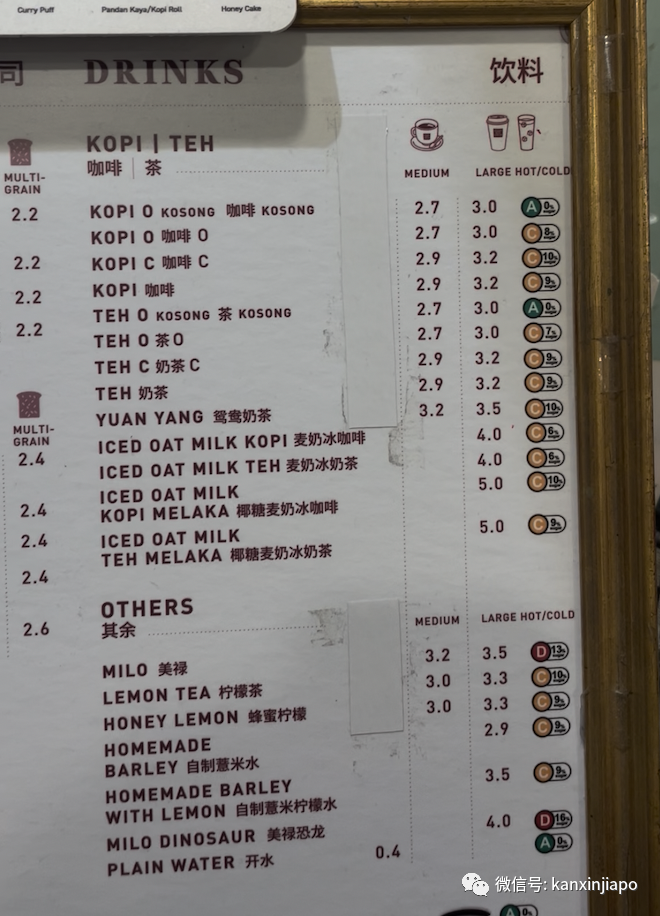 Curry Puff Pandan Kaya/Kopi Roll Honey Cake
司 DRINKS 饮料
KOPI | TEH
咖啡 | 茶
MEDIUM LARGE HOT/COLD
MULTI-
GRAIN
2.2
2.2
2.2
2.2
KOPI O KOSONG 咖啡 KOSONG 2.7 3.0 A 0%
KOPI O 咖啡 O 2.7 3.0 C 8%
KOPI C 咖啡 C 2.9 3.2 C 10%
KOPI 咖啡 2.9 3.2 C 9%
TEH O KOSONG 茶 KOSONG 2.7 3.0 A 0%
TEH O 茶 O 2.7 3.0 C 7%
TEH C 奶茶 C 2.9 3.2 C 9%
TEH 奶茶 2.9 3.2 C 9%
YUAN YANG 鸳鸯奶茶 3.2 3.5 C 10%
MULTI-
GRAIN
2.4
2.4
2.4
2.4
2.6
ICED OAT MILK KOPI 麦奶冰咖啡 4.0 C 6%
ICED OAT MILK TEH 麦奶冰奶茶 4.0 C 6%
ICED OAT MILK 5.0 C 10%
KOPI MELAKA 椰糖麦奶冰咖啡
ICED OAT MILK 5.0 C 9%
TEH MELAKA 椰糖麦奶冰奶茶
OTHERS
其余
MEDIUM LARGE HOT/COLD
MILO 美禄 3.2 3.5 D 13%
LEMON TEA 柠檬茶 3.0 3.3 C 10%
HONEY LEMON 蜂蜜柠檬 3.0 3.3 C 9%
HOMEMADE 2.9 C 9%
BARLEY 自制薏米水
HOMEMADE BARLEY 3.5 C 9%
WITH LEMON 自制薏米柠檬水
MILO DINOSAUR 美禄恐龙 4.0 D 16%
PLAIN WATER 开水 0.4 A 0%
A 0%
微信号: kanxinjiapo